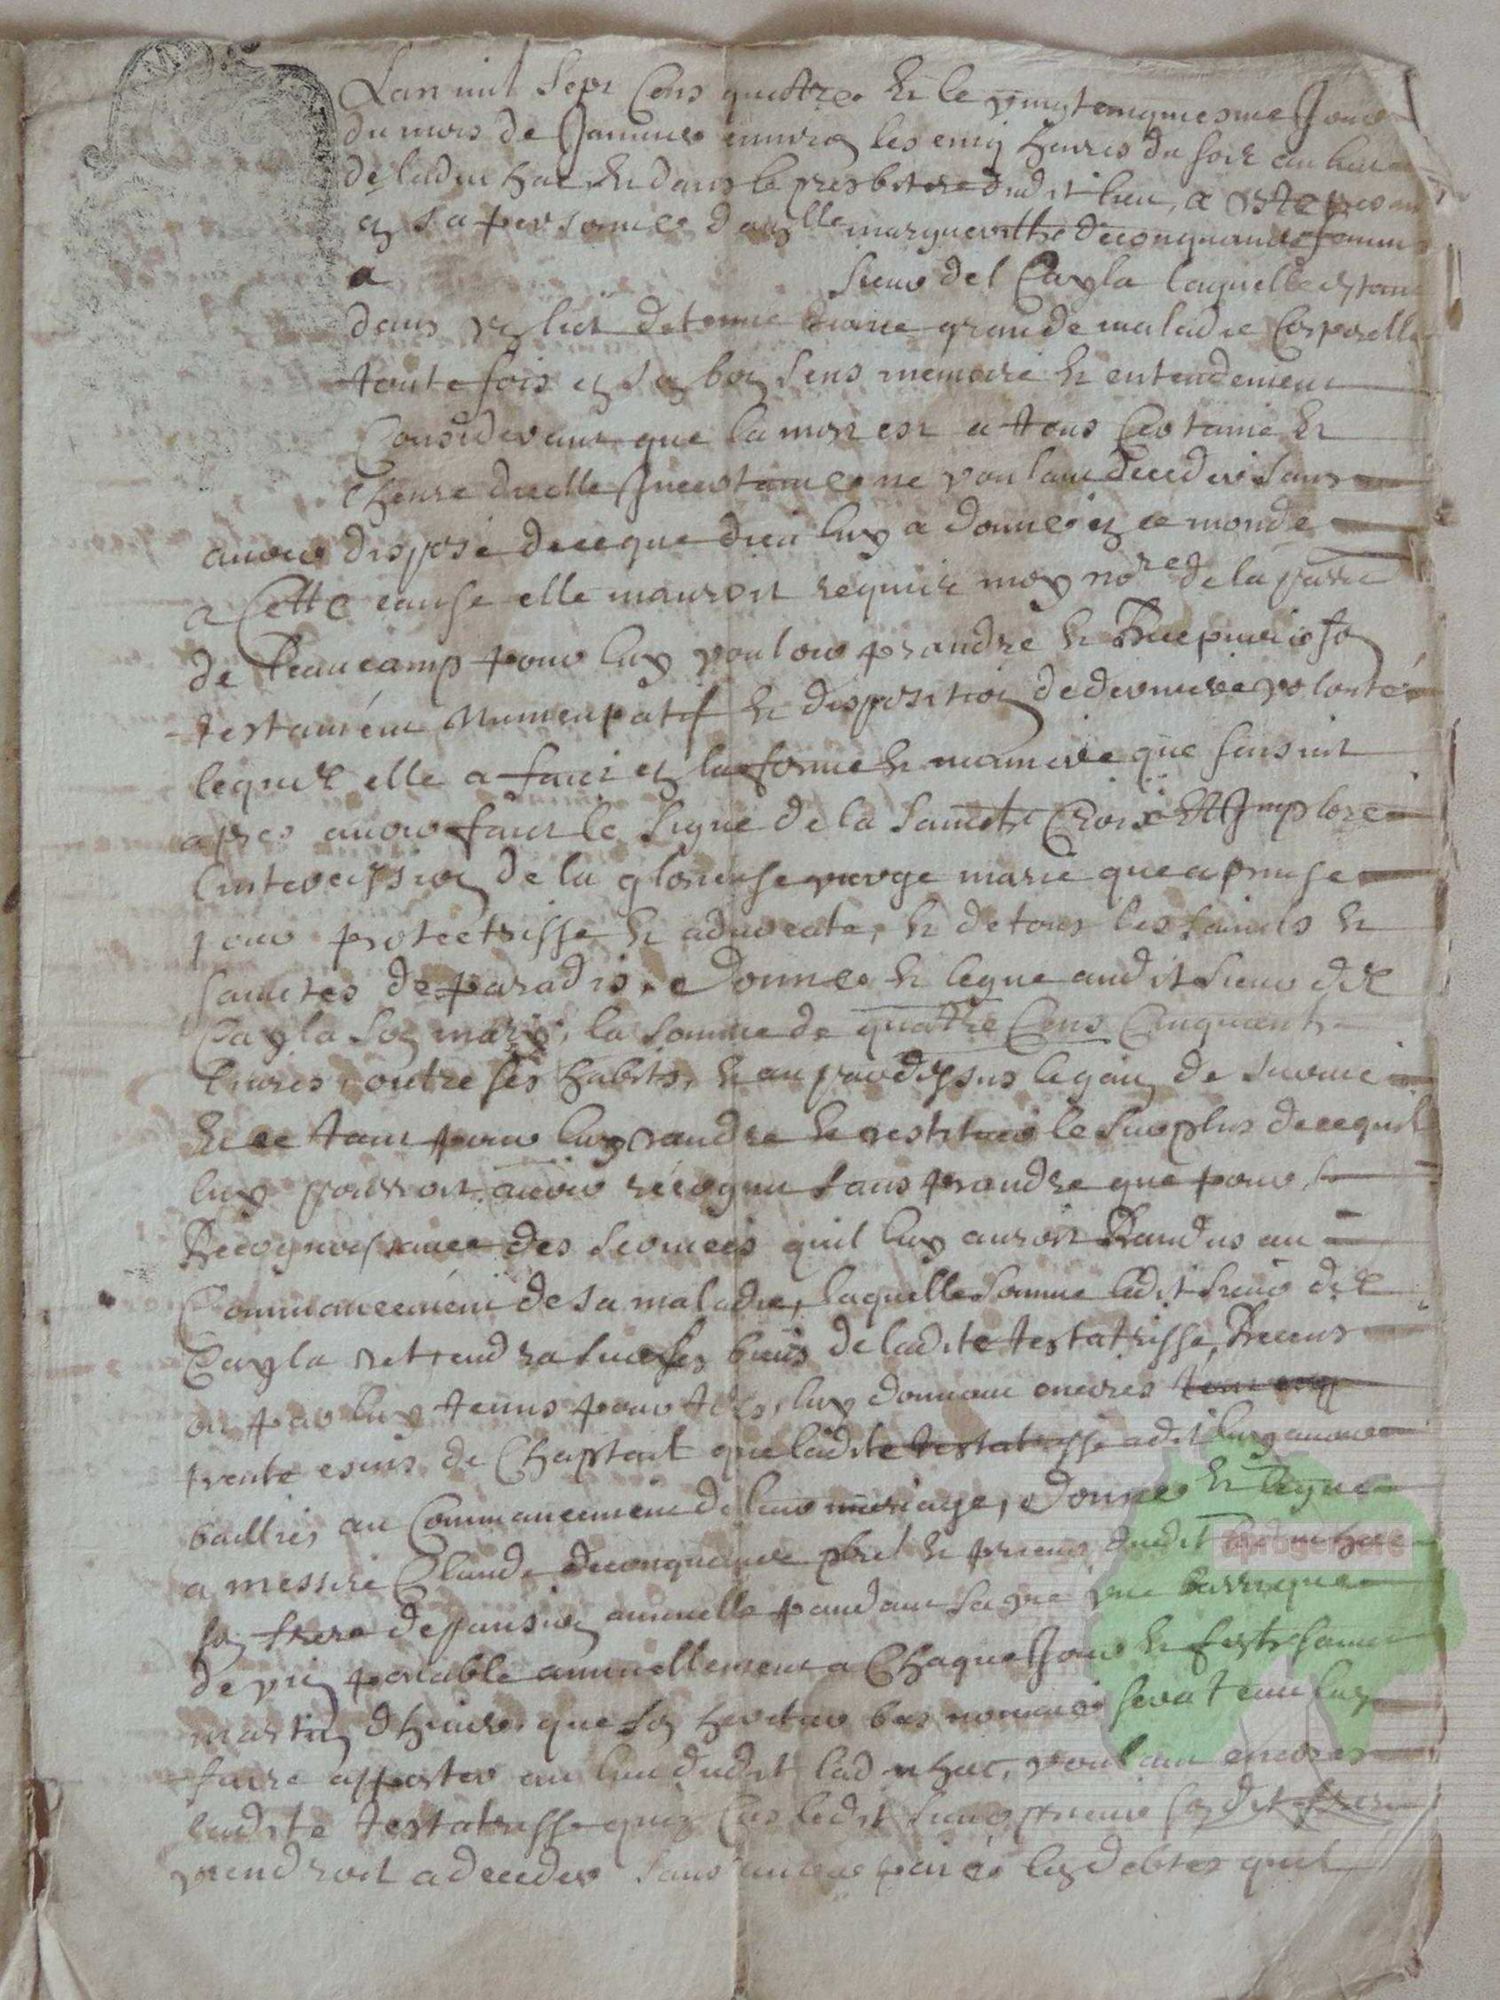 Lan mil Sept Cens quattre Et le vingtcinquiesme Jour
du mois de Janvier environ les cinq heures du soir au lieu
de ladinhac Et dans le presbitere dudit lieu, a esté presan
en sa personne dauzlle margueritthe decouquande femme
a sieur del Cayla laquelle estant
dans un lict detenue dune grande maladie Corporelle
toutefois en son bon sens memoire Et entendement
Considerant que la mort est a ttous Certaine Et
lheure dicelle Incertaine ne voulant deceder sans
avoir disposé de ce que dieu luy a donné en ce monde
a Cette cause elle mauroit requeire moy nore de la parre
de Beaucamp pour luy vouloir prandre Et Recepvoir son
testament Nuncupatif Et disposition de derniere volonté
lequel elle a faict en la forme Et maniere que sensuit
apres avoir faict le signe de la saincte Croix Et Implore
lintercession de la glorieuse vierge marie que a prinse
pour protectrisse Et advocate, Et de tous les saincts Et
sainctes de paradis, Donne Et legue audit sieur del
Cayla son mary, la somme de quattre Cens Cinquante
livres, outre ses habits, Et au pardessus le gain de survie
Et ce tant pour luy randre Et restituer le surplus de ce quil
luy pourroit avoir recognu sans prandre que pour la
Recognoissance des services quil luy auroit Randus au
Commancement de sa maladie, laquelle somme ledit sieur del
Cayla retiendra sur les biens de ladite testatrisse Receus
ou par luy tenus pour tels, luy donnant encores
trente escus de Chaptail que ladite testatrisse a dit luy avoir
baillies au Commancement de leur mariage, Donne Et legue
a messire Claude decouquande pbre Et prieur dudit ladinhac
son frere de pansion annuelle pandant sa vie une barrique
de vin portable annuellement a Chaque Jour Et feste saint
martin dhiver que son heritier bas nommé sera tenu luy
faire apporter au lieu dudit ladinhac, voulant encores
ladite testatrisse quen Cas ledit sieur prieur son dit frere
viendroit a deceder sans avoir paié les debtes quil
aprogemere